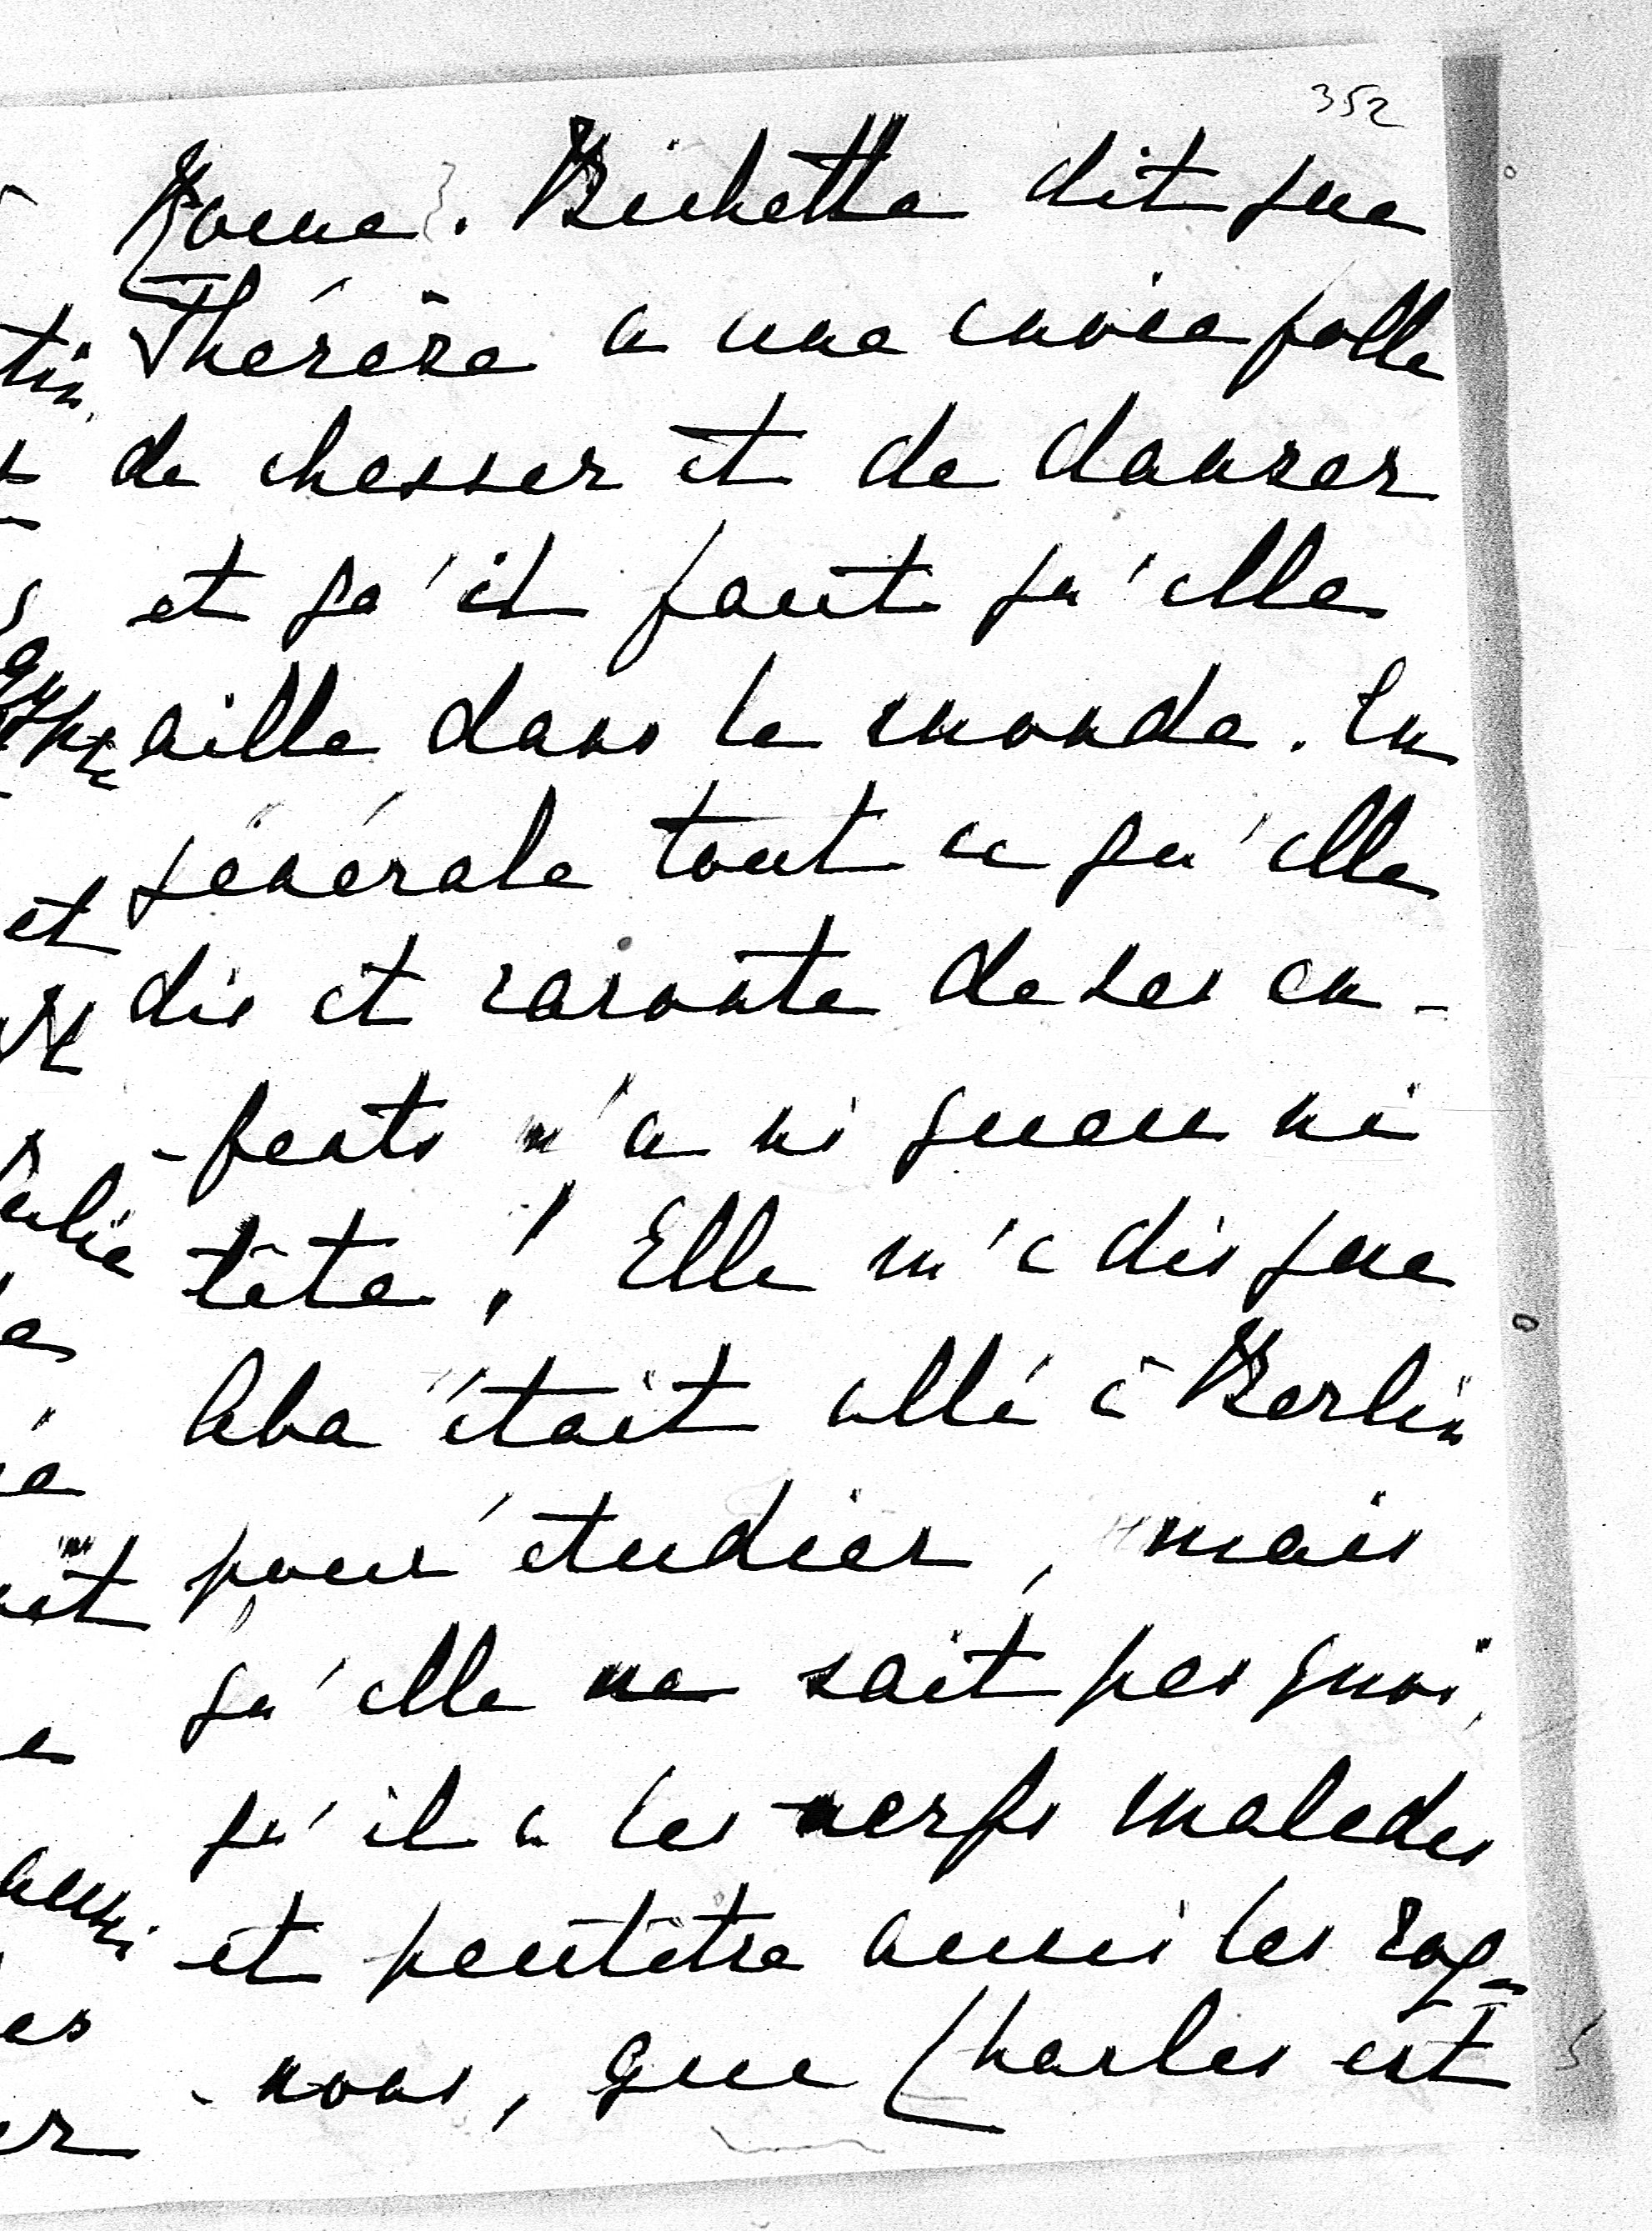 352
Rome. Bichette dit que
Thérèse a une envie folle
de chasser et de danser
et qu'il faut qu'elle
aille dans le monde. En
générale tout ce qu'elle
dis et raconte de ses en-
-fants n'a ni queu ni
tête! Elle m'a dis que
Aba était allé à Berlin
pour étudier, mais
qu'elle ne sait pas quoi,
qu'il a les nerfs malades
et peutêtre aussi les rog-
-nons, que Charles est